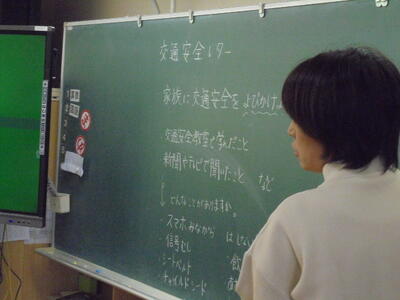 交通安全レター
家族に交通安全をよびかけ
交通安全教室で学んだこと
新聞やテレビで聞いたこと など
↓ どんなことがありますか。
・スマホみながら はしない
・信号むし
・シートベルト
・チャイルドシード